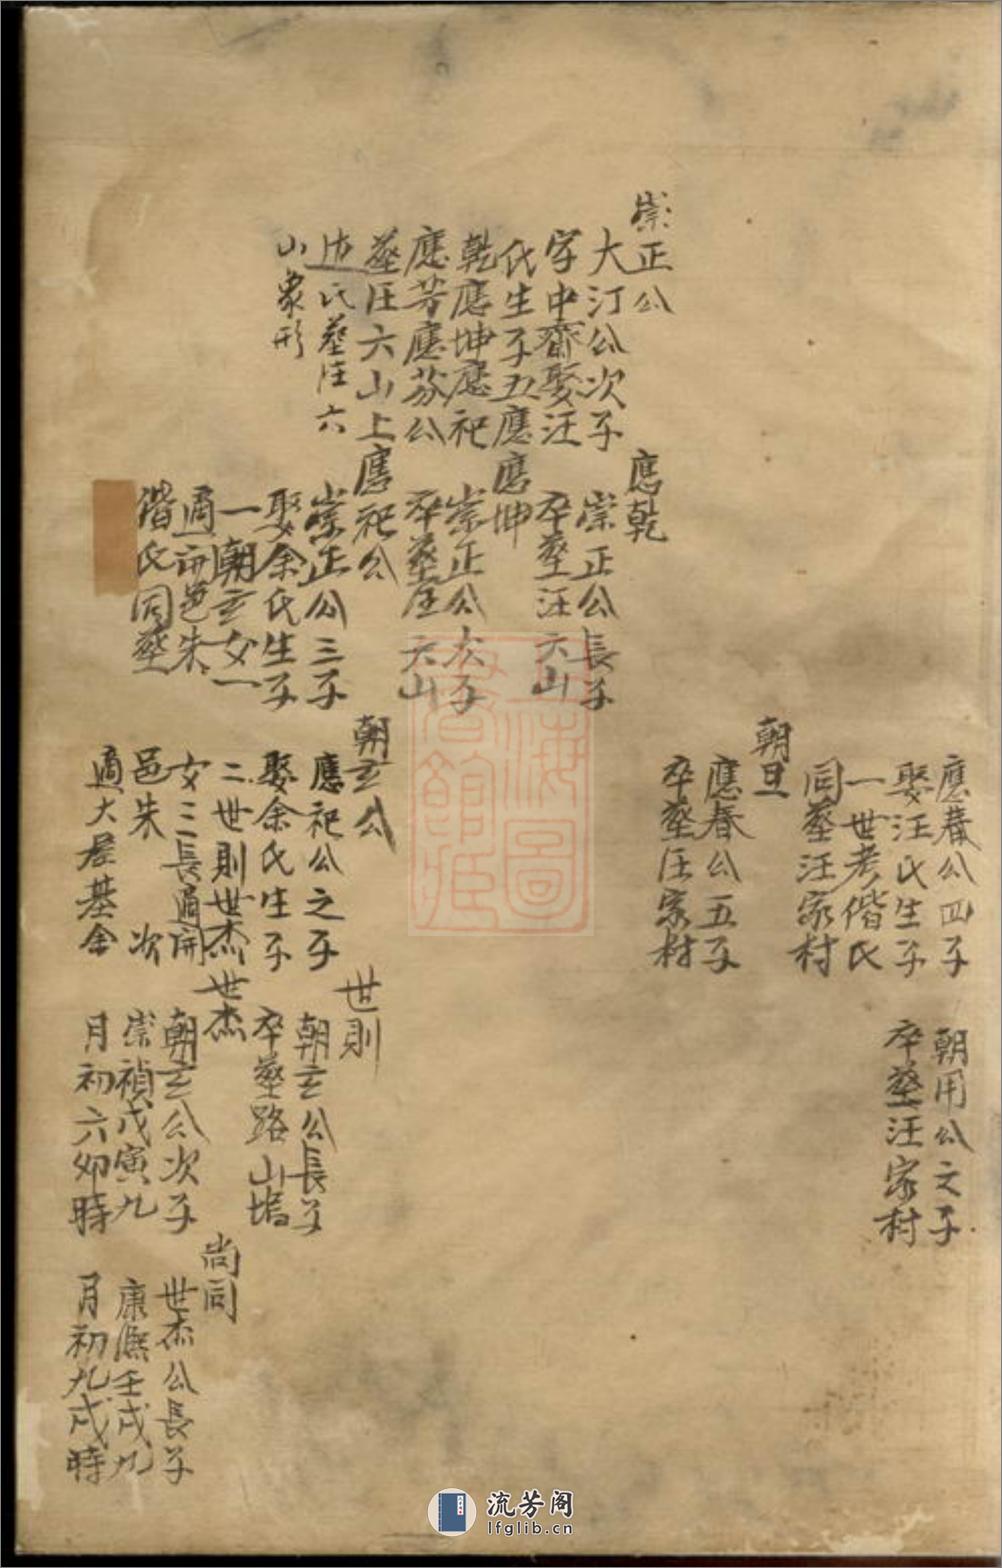 應春公四子
娶汪氏生子
一世考偕氏
同塟汪家村
朝用公之子
卒塟汪家村
朝旦
應春公五子
卒塟汪家村
崇正公
大汀公次子
字中齋娶汪
氏生子五應
乾應坤應祀
應芳應芬公
塟汪六山上
氏塟汪六
山象形
應乾
崇正公長子
卒塟汪六山
應坤
崇正公次子
卒塟汪六山
應祀公
崇正公三子
娶余氏生子
一朝玄女一
適開邑朱
偕氏同塟
朝玄公
應祀公之子
娶余氏生子
二世則世杰
女三長適開
邑朱 次
適大居基余
世則
朝玄公長子
卒塟路山塢
世杰
朝玄公次子
崇禎戊寅九
月初六卯時
尚同
世杰公長子
康熙壬戌九
月初九戌時
圖
書
館
流芳阁
lfglib.cn